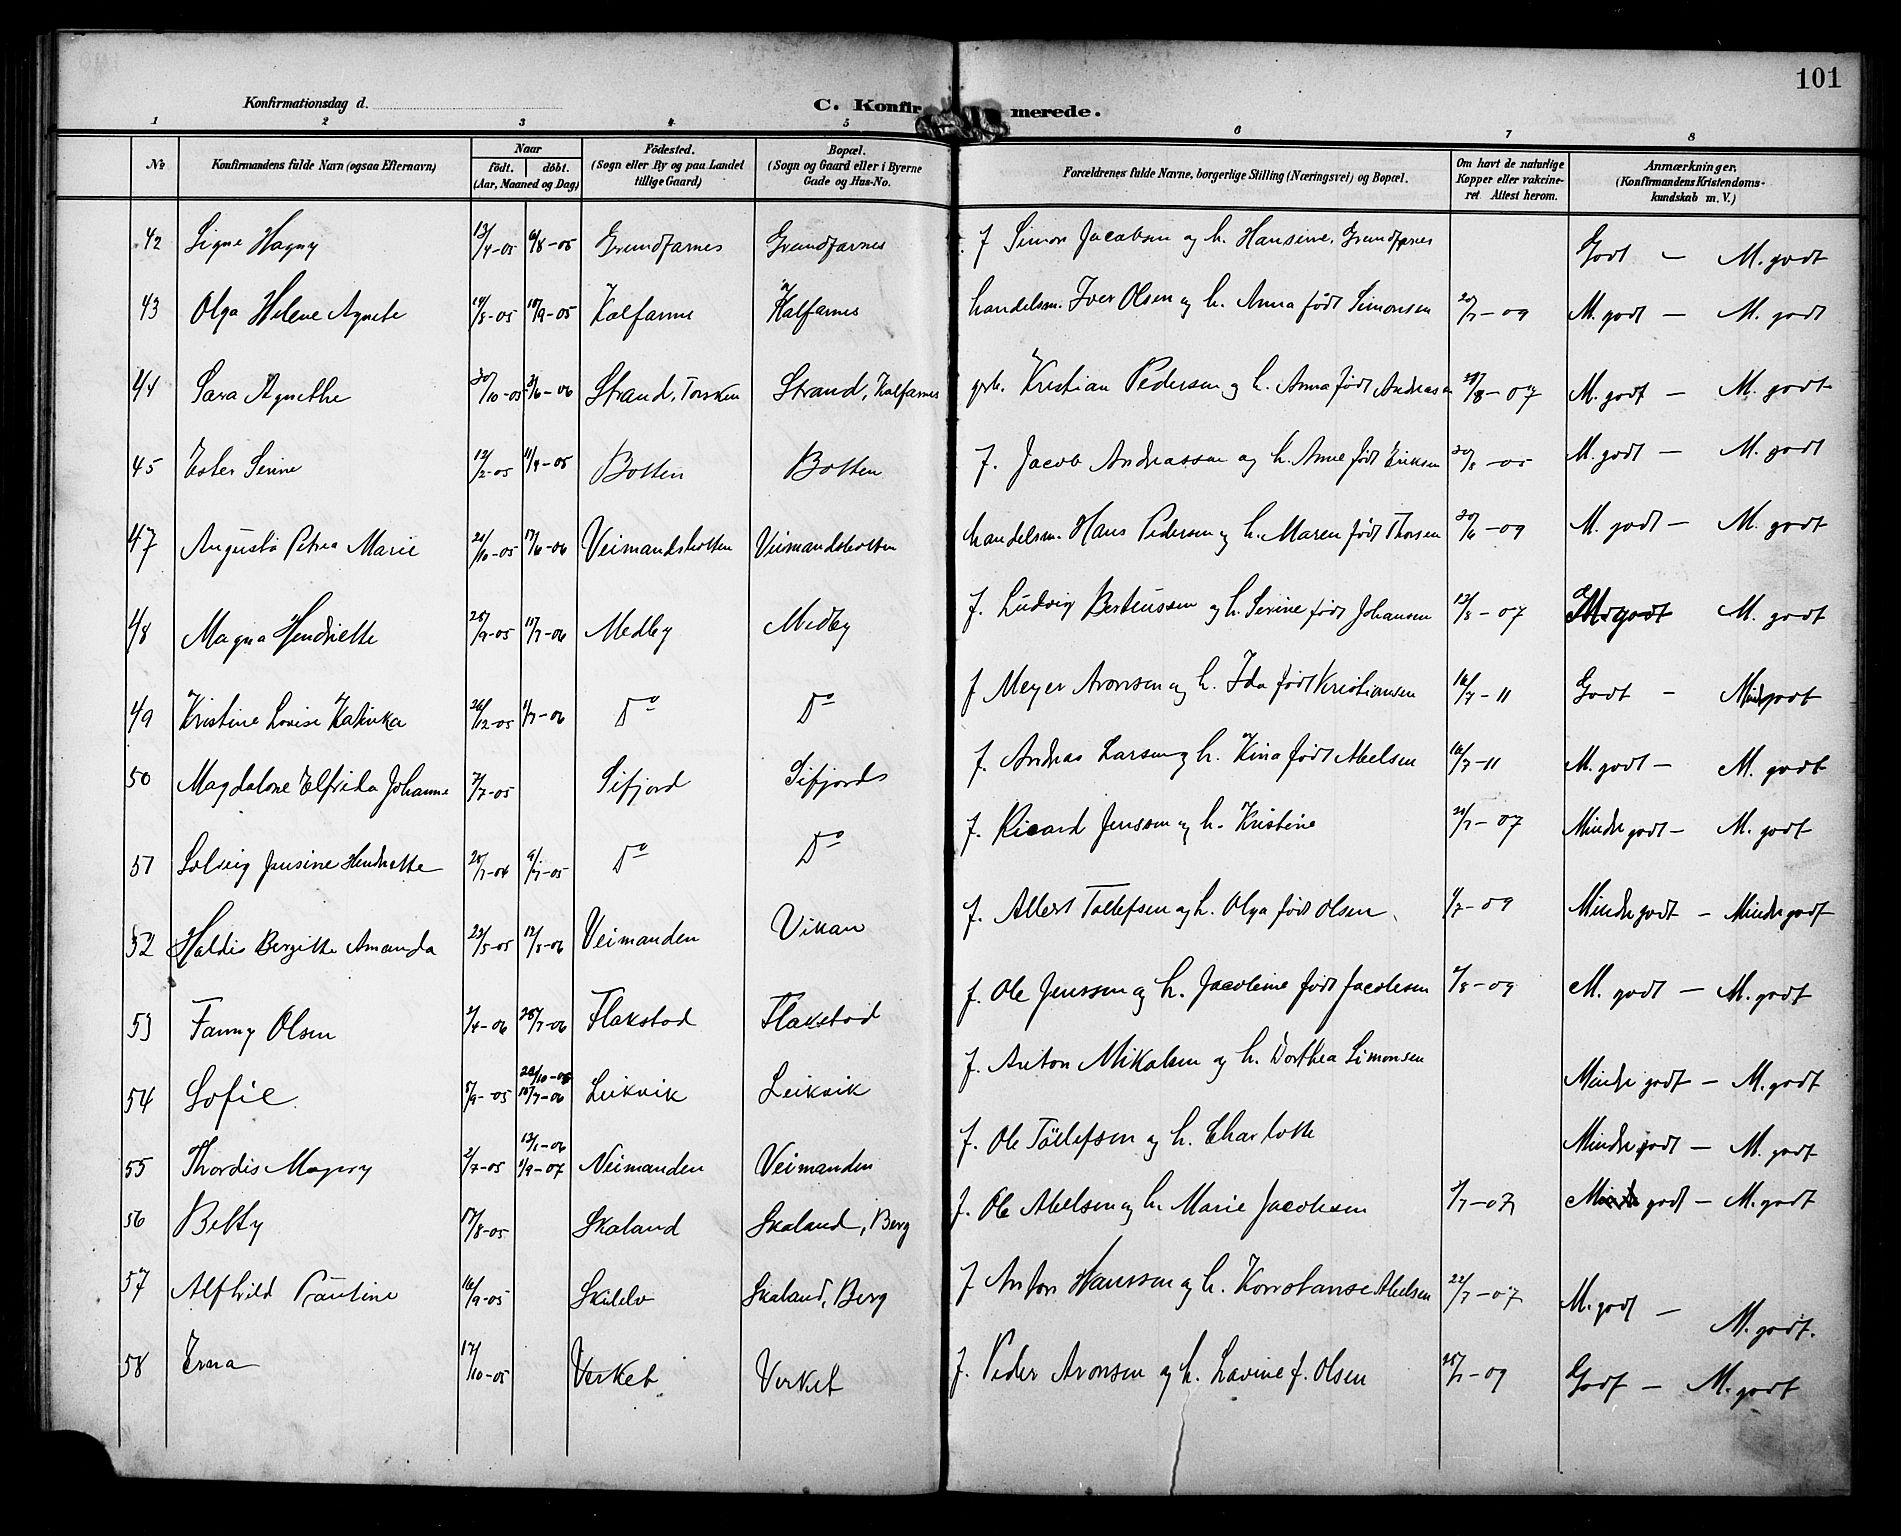 101
Konfirmationsdag d.
C. Konfirmerede.
1 2 3 4 5 6 7 8
No Konfirmandens fulde Navn (ogsaa Efternavn) Naar født. døbt. (Aar, Maaned og Dag) Fødested. (Sogn eller By og paa Landet tillige Gaard) Bopæl. (Sogn og Gaard eller i Byerne Gade og Hus-No. Forældrenes fulde Navne, borgerlige Stilling (Næringsvei) og Bopæl. Om havt de naturlige Kopper eller vakcineret Attest herom. Anmærkninger, (Konfirmandens Kristendomskundskab m. V.)
42 Signe Hagny 13/4-05 6/8-05 Grundfarnes Grundfarnes f Simon Jacobsen og h. Hansine, Grundfarnes Godt - M. godt
43 Olga Helene Agnete 14/8-05 10/9-05 Kalfarnes Kalfarnes handelsm. Iver Olsen og h. Anna født Simonsen 20/7-09 M. godt - M. godt
44 Sara Agnethe 30/10-05 3/6-06 Strand, Torsken Strand, Kalfarnes grb. Kristian Pedersen og h. Anna født Andreasen /8-07 M. godt - M. godt
45 Ester Serine 12/2-05 11/4-05 Botten Botten f. Jacob Andreassen og h. Anne født Eriksen 20/8-05 M. godt - M. godt
47 Augusta Petrea Marie 21/10-05 17/6-06 Veimandsbotten Veimandsbotten handelsm. Hans Pedersen og h. Maren født Thorsen 30/6-09 M. godt - M. godt
48 Magna Hendriette 25/9-05 15/7-06 Medby Medby f. Ludvig Berteussen og h. Serine født Johansen 12/8-07 M. godt M. godt
49 Kristine Lovise Katinka 26/12-05 1/7-06 Do Do f Meyer Aronsen og h. Ida født Kristiansen 16/7-11 Godt - Mindre godt
50 Magdalone Elfrida Johanne 7/7-05 Sifjord Sifjord f. Andreas Larsen og h. Kina født Abelsen 16/7-11 M. godt - M. godt
51 Solveig Jensine Hendriette 25/7-04 9/7-05 Do Do f. Ricard Jenssen og h. Kristine 21/7-07 Mindre godt - M. godt
52 Haldis Bergitte Amanda 23/5-05 12/8-06 Veimanden Vikan f. Albert Tollefsen og h. Olga født Olsen 1/7-09 Mindre godt - Mindre godt
53 Fanny Olsen 2/4-06 25/7-06 Flakstad Flakstad f. Ole Jenssen og h. Jacobine født Jacobsen 2/8-09 M. godt - M. godt
54 Sofie 5/9-05 22/10-05 15/7-06 Leikvik Leikvik f. Anton Mikalsen og h. Dorthea Simonsen Mindre godt - M. godt
55 Thordis Magny 2/7-05 13/1-06 1/9-07 Veimanden Veimanden f. Ole Tollefsen og h. Charlotte Mindre godt - M. godt
56 Betty 17/8-05 Skaland Skaland, Berg f. Ole Abelsen og h. Marie Jacobsen 2/7-07 godt - M. godt
57 Alfhild Pauline 16/9-05 Skaland, Berg f Anton Hanssen og h. Konstanse Abelsen 22/7-07 M. godt - M. godt.
58 Erna 17/10-05 Verket Verket f. Peder Aronsen og h. Lovine f. Olsen 25/7-09 Godt - M. godt